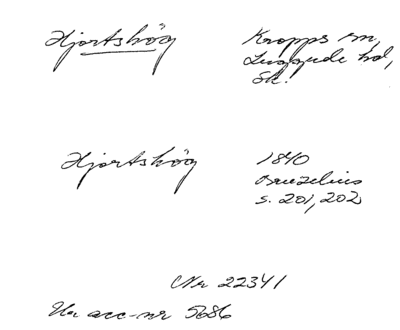 Hjortshög Kropps sn,
Luggude hd,
Sk.
Hjortshög 1840
Bruzelius
s. 201, 202
Nr 22341
Ur acc-nr 5686